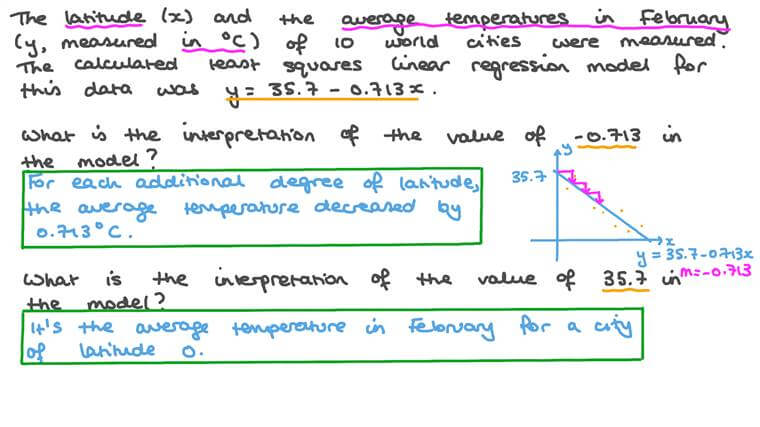 The latitude (x) and the average temperatures in February
(y, measured in °C) of 10 world cities were measured.
The calculated least squares linear regression model for
this data was y = 35.7 - 0.713x.
What is the interpretation of the value of -0.713 in
the model?
For each additional degree of latitude,
the average temperature decreased by
0.713°C.
y
35.7
x
y = 35.7-0.713x
m=-0.713
What is the interpretation of the value of 35.7 in
the model?
It's the average temperature in February for a city
of latitude 0.